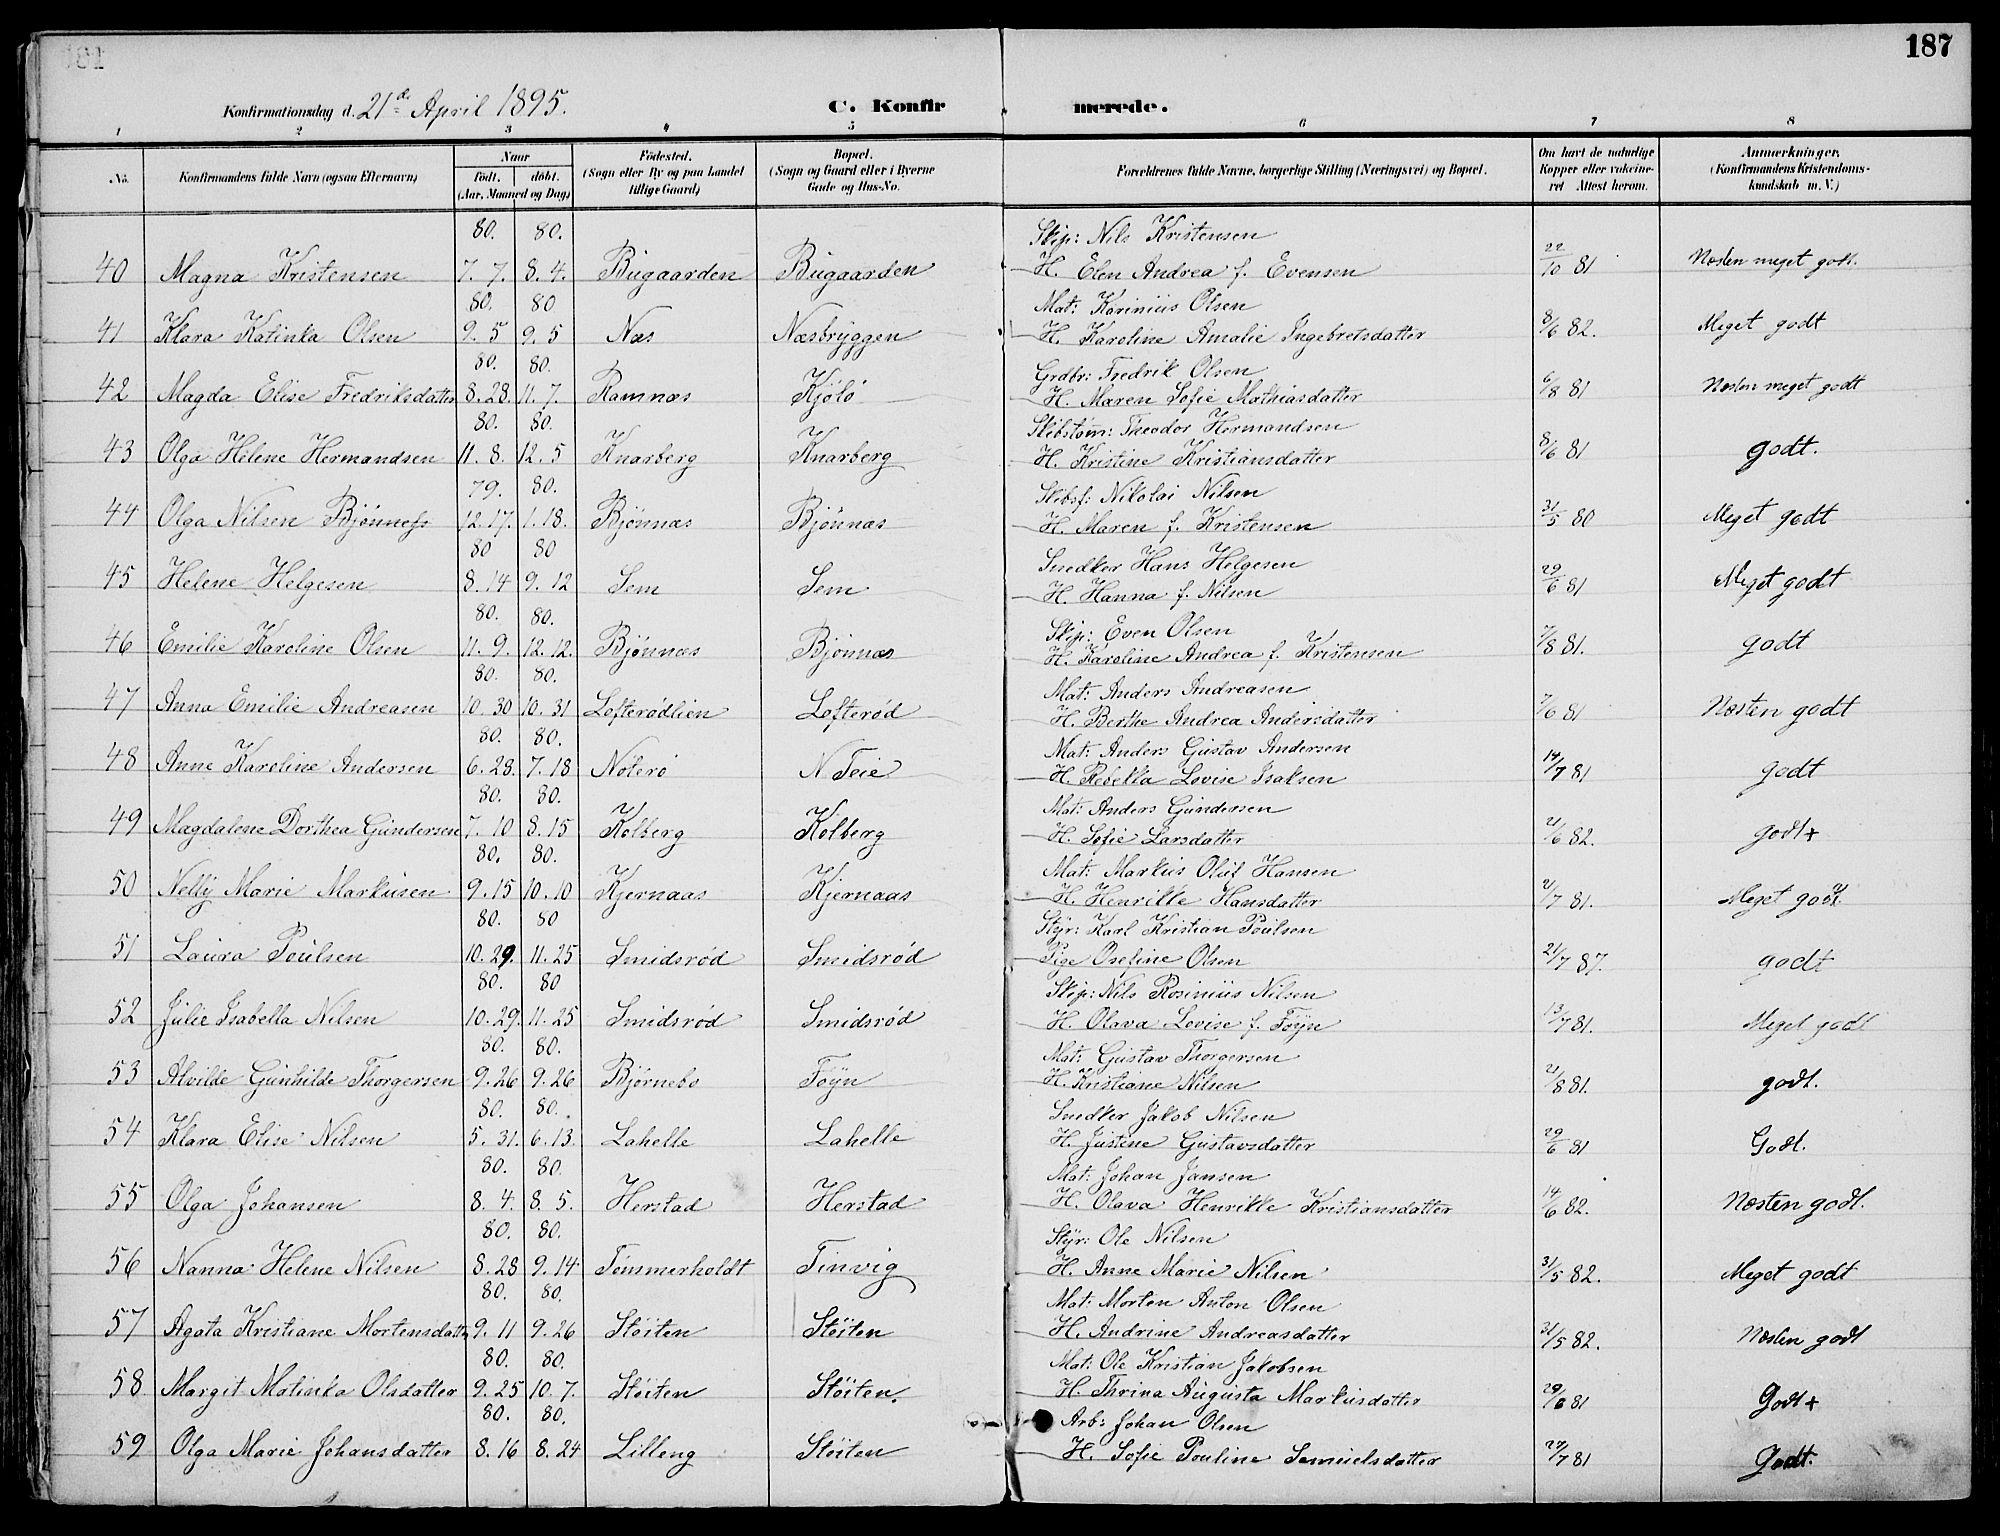 187
Konfirmationsdag d. 21de April 1895.
C. Konfirmerede.
1 2 3 4 5 6 7 8
No. Konfirmandens fulde Navn (ogsaa Efternavn) Naar födt. döbt. (Aar, Maaned og Dag) Födested. (Sogn eller By og paa Landet tillige Gaard) Bopæl. (Sogn og Gaard eller i Byerne Gade og Hus-No. Forældrenes fulde Navne, borgerlige Stilling (Næringsvei) og Bopæl. Om havt de naturlige Kopper eller vakcineret Attest herom. Anmærkninger, (Konfirmandens Kristendomskundskab m. V.)
80. 80. Skip: Nils Kristensen
40 Magna Kristensen 7. 7. 8. 4. Bugaarden Bugaarden H. Elen Andrea f. Evensen 22/10 81 Næsten meget godt.
80. 80 Mat: Karinius Olsen
41 Klara Katinka Olsen 9. 5 9. 5 Næs Næsbryggen H. Karoline Amalie Ingebretsdatter 8/6 82. Meget godt
80. 80. Grdbr: Fredrik Olsen
42 Magda Elise Fredriksdatter 8. 28. 11. 7. Ramnæs Kjölö H. Maren Sofie Mathiasdatter 6/8 81 Næsten meget godt
80. 80. Skibstøm: Theodor Hermandsen
43 Olga Helene Hermandsen 11. 8. 12. 5 Knarberg Knarberg H. Kristine Kristiansdatter 8/6 81 godt.
79. 80. Skibsf: Nikolai Nilsen
44 Olga Nilsen Bjönness 12. 17. 1. 18. Bjönnæs Bjönnæs H. Maren f. Kristensen 31/5 80 Meget godt
80 80 Snedker Hans Helgesen
45 Helene Helgesen 8. 14 9. 12 Sem Sem H. Hanna f. Nilsen 29/6 81 Meget godt
80. 80. Skip: Even Olsen
46 Emilie Karoline Olsen 11. 9. 12. 12. Bjönnæs Bjönnæs H. Karoline Andrea f. Kristensen 7/8 81. godt
80. 80. Mat: Anders Andreasen
47 Anna Emilie Andreasen 10. 30 10. 31 Lofterødlien Lofterød H. Berthe Andrea Andersdatter 7/6 81 Næsten godt
80. 80. Mat: Anders Gustav Andersen
48 Anne Karoline Andersen 6. 28. 7. 18 Noterö N Teie H. Rebekka Lovise Isaksen 14/7 81 godt
80. 80. Mat: Anders Gundersen
49 Magdalene Dorthea Gundersen 7. 10 8. 15 Kolberg Kolberg H. Sofie Larsdatter 21/6 82. godt+
80. 80. Mat: Markus Oluf Hansen
50 Nelly Marie Markusen 9. 15 10. 10 Kjernaas Kjernaas H. Henrikke Hansdatter 21/7 81. Meget godt
80. 80 Styr: Karl Kristian Poulsen
51 Laura Poulsen 10. 29. 11. 25 Smidsrød Smidsrød Pige Osefine Olsen 21/7 87. godt
80. 80 Skip: Nils Rosinius Nilsen
52 Julie Isabella Nilsen 10. 29. 11. 25 Smidsrød Smidsrød H. Olava Lovise f. Föyn 13/7 81. Meget godt
80. 80. Mat: Gustav Thorgersen
53 Alvilde Gunhilde Thorgersen 9. 26 9. 26 Bjørnebo Föyn H. Kristiane Nilsen 21/8 81. godt.
80. 80. Snedker Jakob Nilsen
54 Klara Elise Nilsen 5. 31. 6. 13. Lahelle Lahelle H. Justine Gustavsdatter 29/6 81 Godt.
80. 80. Mat: Johan Jansen
55 Olga Johansen 8. 4. 8. 5. Herstad Herstad H. Olava Henrikke Kristiansdatter 14/6 82. Næsten godt.
80. 80. Styr: Ole Nilsen
56 Nanna Helene Nilsen 8. 28 9. 14 Tömmerholdt Tinvig H. Anne Marie Nilsen 31/5 82. Meget godt
80. 80. Mat: Morten Anton Olsen
57 Agata Kristiane Mortensdatter 9. 11 9. 26 Stöiten Stöiten H. Andrine Andreasdatter 31/5 82. Næsten godt
80. 80. Mat: Ole Kristian Jakobsen
58 Margit Matinka Olsdatter 9. 25 10. 7. Stöiten Stöiten. H. Thrina Augusta Markusdatter 29/6 81 Godt+
80. 80. Arb: Johan Olsen
59 Olga Marie Johansdatter 8. 16 8. 24 Lilleng Stöiten H. Sofie Pouline Samuelsdatter 27/7 81 Godt.